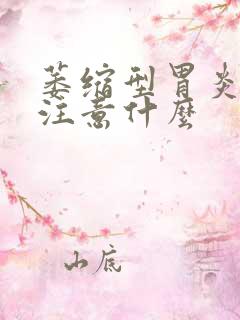 萎缩型胃炎
注意什麼
山底